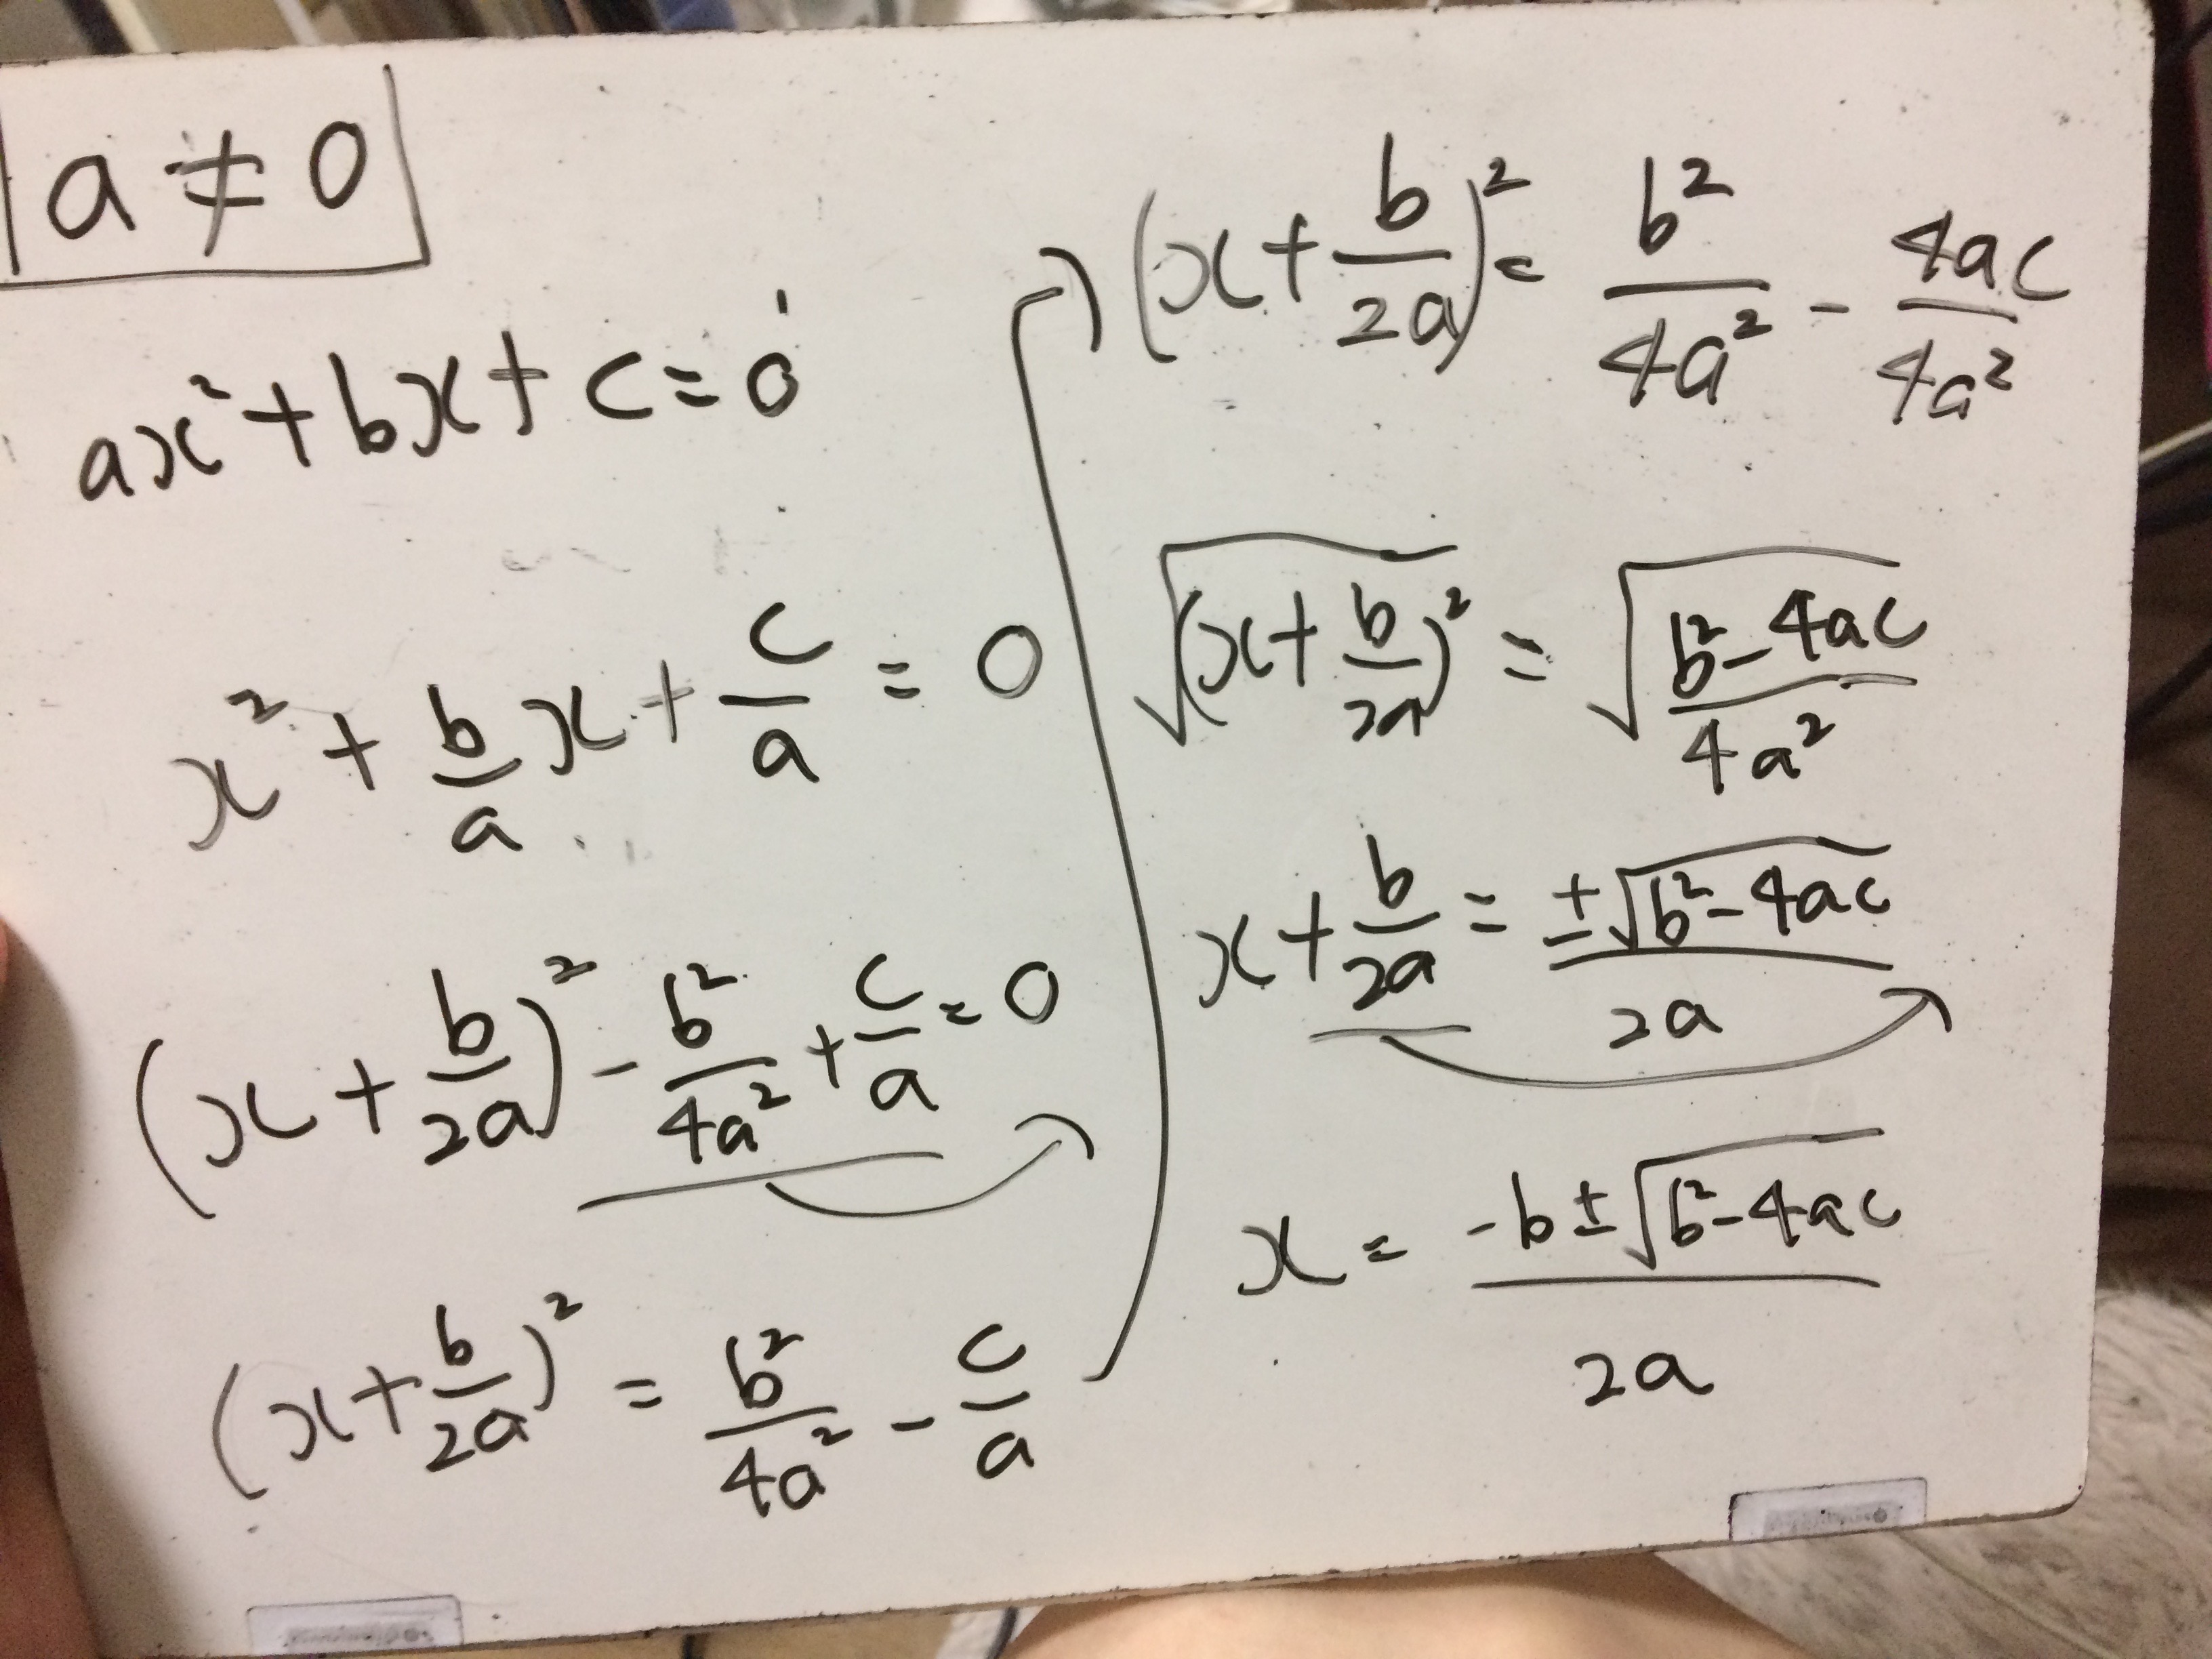 a ≠ 0
ax² + bx + c = 0
x² + b/a x + c/a = 0
(x + b/2a)² - b²/4a² + c/a = 0
(x + b/2a)² = b²/4a² - c/a
(x + b/2a)² = b²/4a² - 4ac/4a²
√(x + b/2a)² = √(b² - 4ac)/4a²
x + b/2a = ±√(b² - 4ac)/2a
x = -b ± √(b² - 4ac)/2a